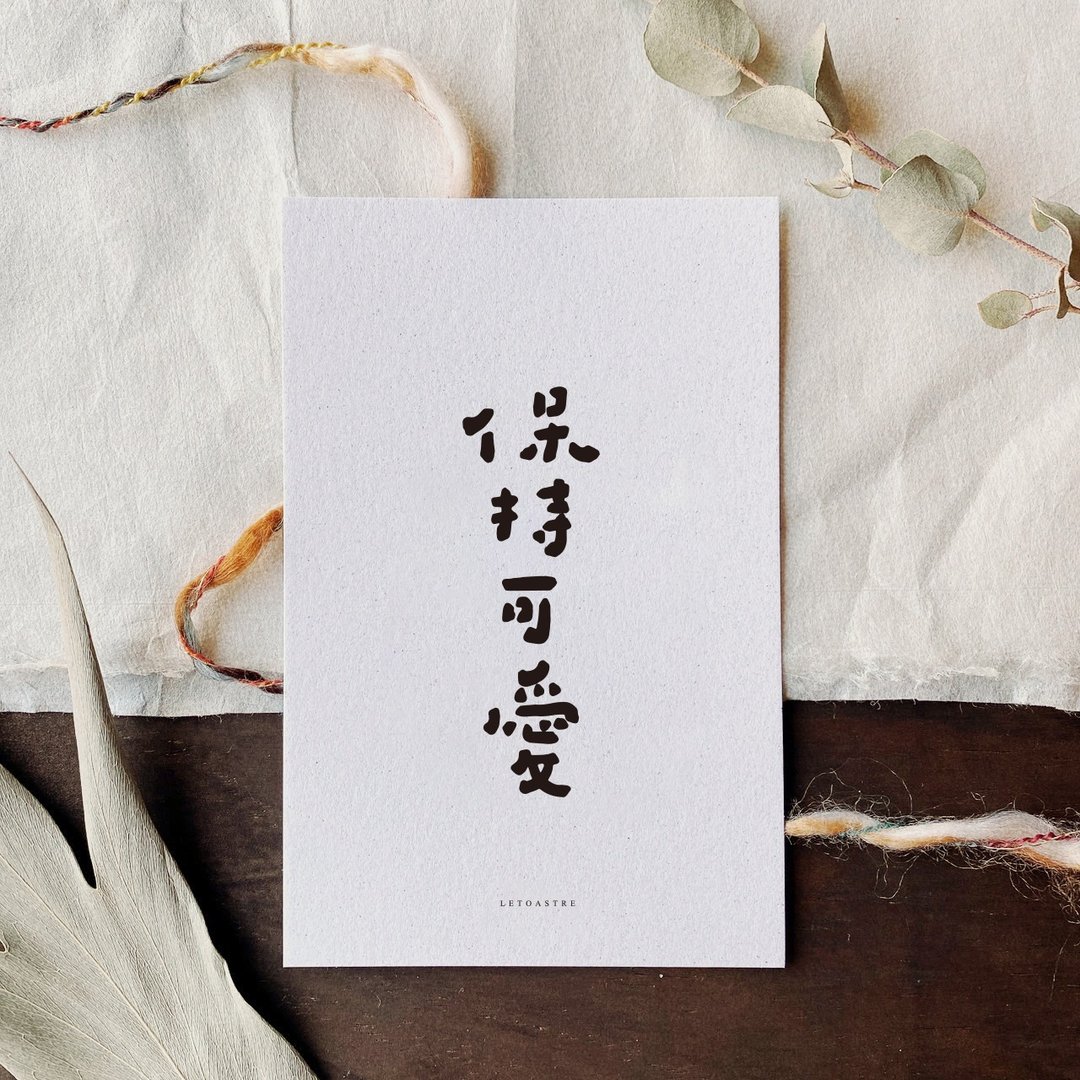 保持可愛
LETOASTRE